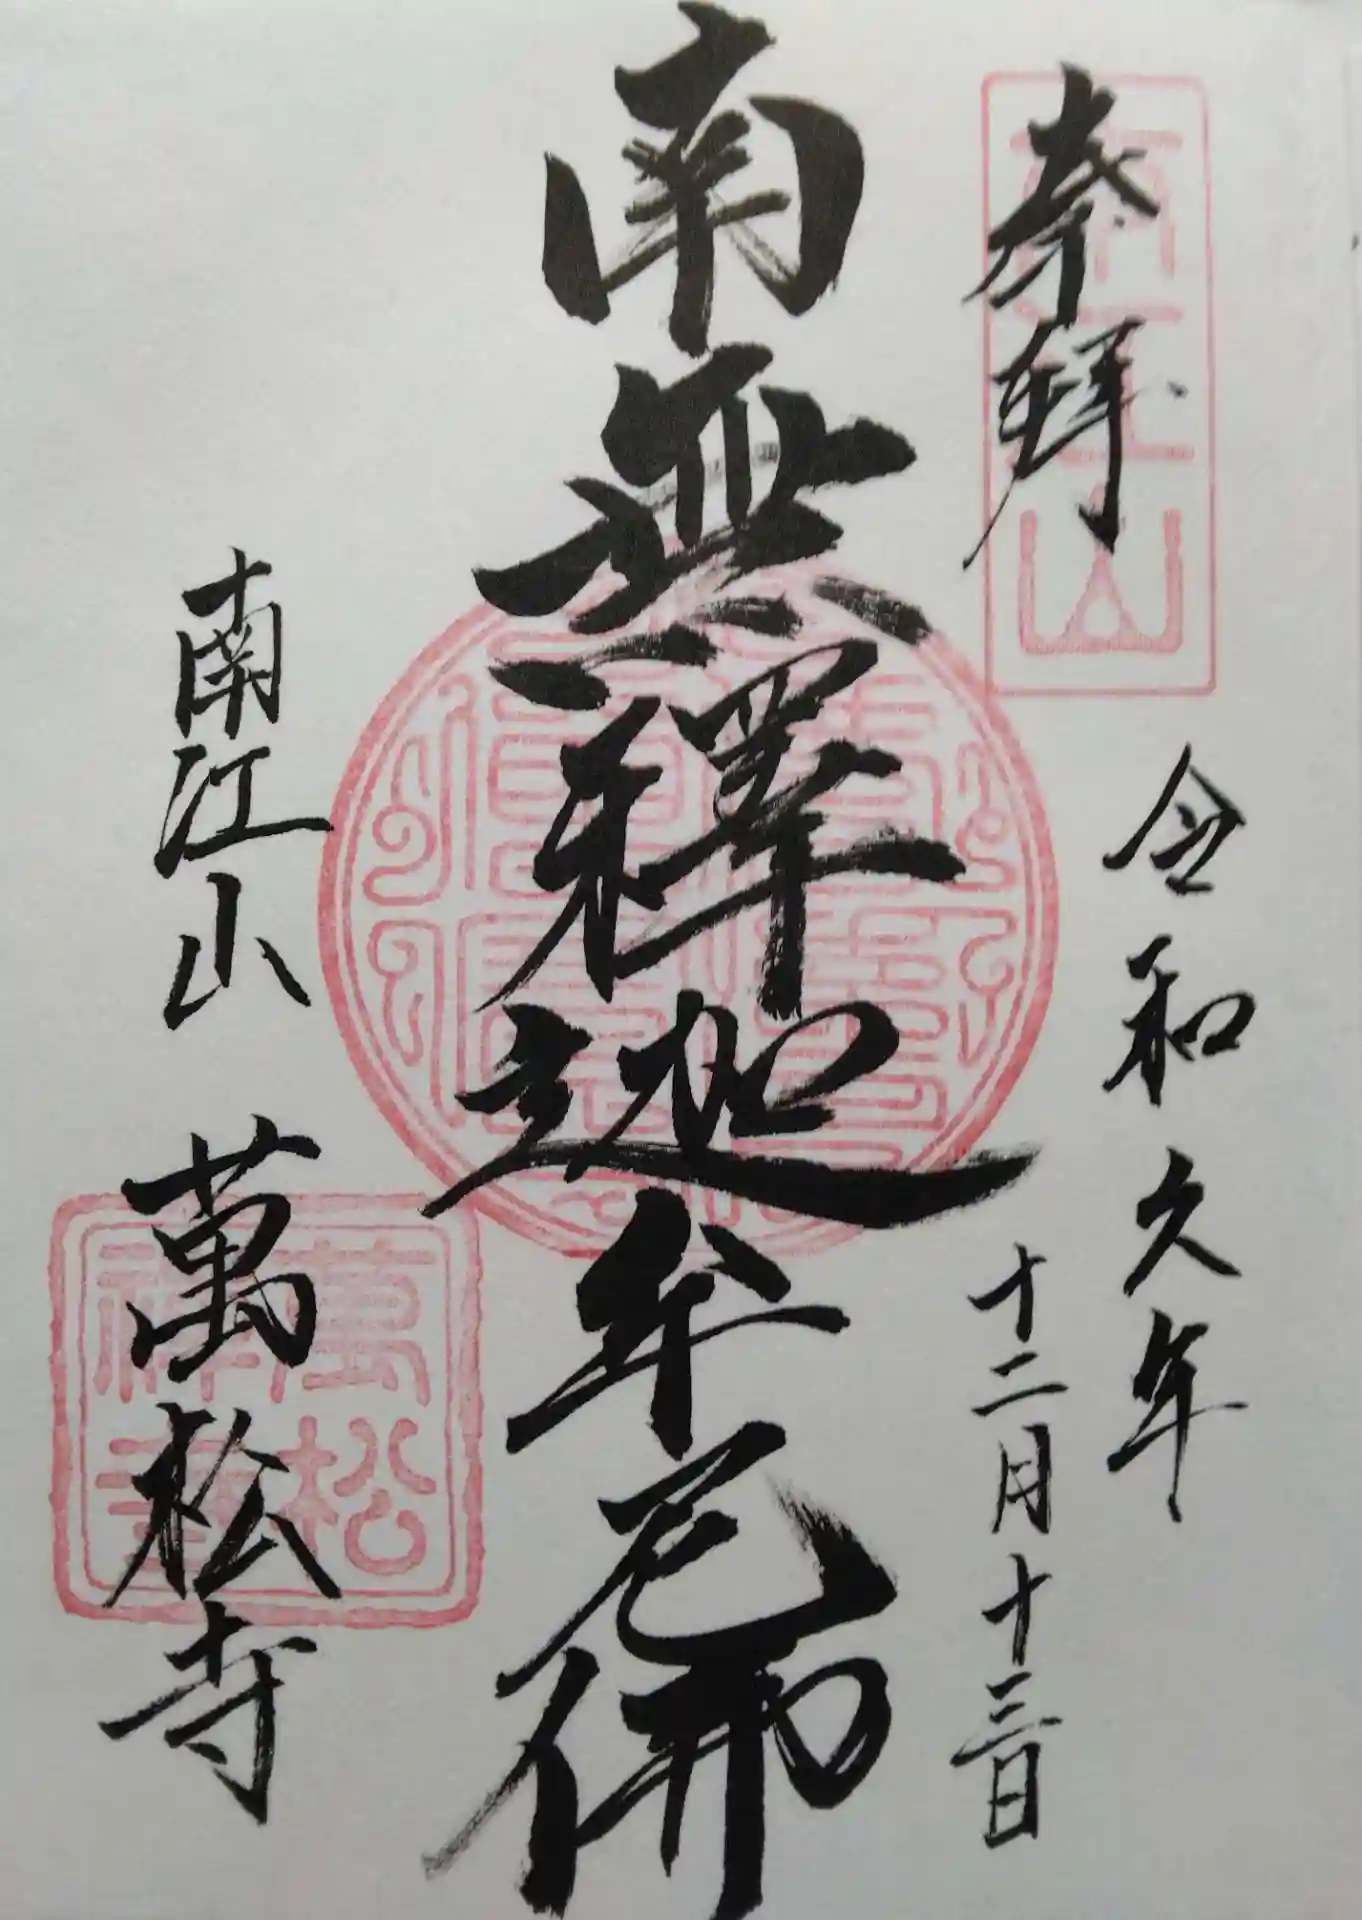 奉拝
南江山
令和久年
十二月十三日
南無釋迦牟尼佛
南江山 萬松寺
萬松
禅寺